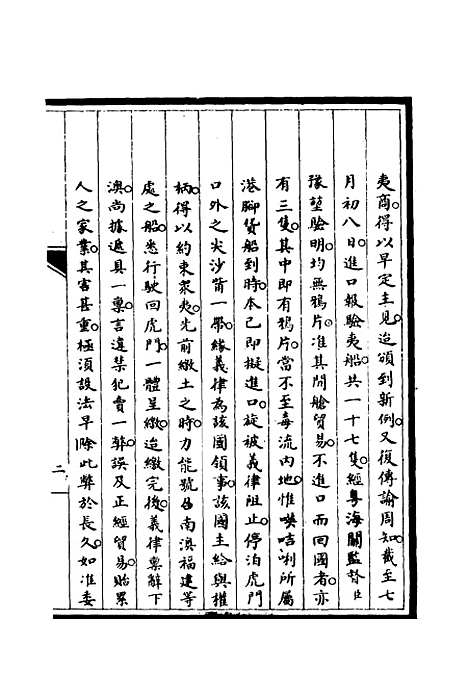 夷商。得以早定主見。迨頒到新例。又復傳諭周知。截至七
月初八日。進口報驗夷船共一十七隻。經粵海關監督臣
豫堃驗明。均無鴉片。准其開艙貿易。不進口而回國者。亦
有三隻。其中即有鴉片。當不至毒流內地。惟𠸄咭唎所屬
港腳貨船到時。本已即擬進口。旋被義律阻止。停泊虎門
口外之尖沙嘴一帶。緣義律為該國領事。該國主給與權
柄。得以約束眾夷。先前繳土之時。力能號召南澳福建等
處之船。悉行駛回虎門。一體呈繳。迨繳完後。義律稟辭下
澳。尚據遞具一稟。言違禁犯賣一弊。誤及正經貿易。貽累
人之家業。其害甚重。極須設法早除此弊於長久。如准委
二